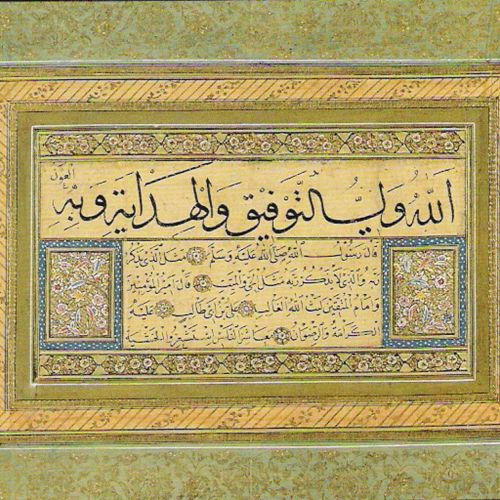 الله ولي التوفيق والهداية وبه العون
قال رسول الله صلى الله عليه وسلم مثل الذي يذكر
ربه والذي لا يذكر ربه مثل الحي والميت قال امير المؤمنين
وامام المتقين ليث الله الغالب علي بن ابي طالب عليه
الكرامة والرضوان معاشر الناس